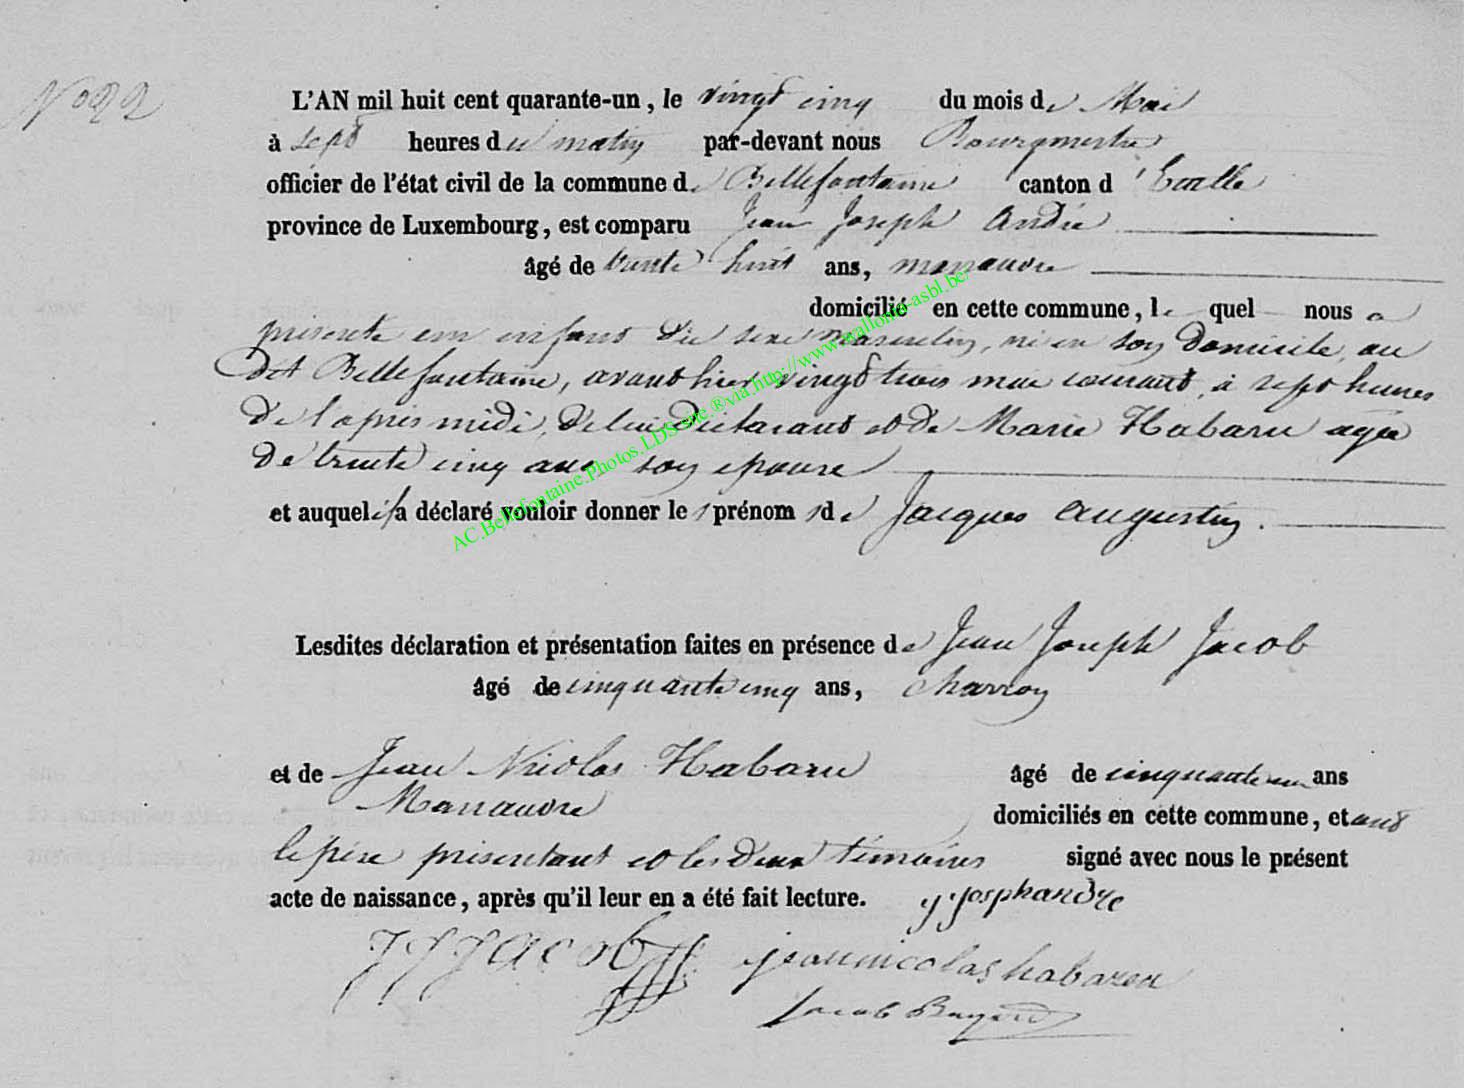 No 22
L'AN mil huit cent quarante-un, le vingt cinq du mois de Mai
à sept heures du matin par-devant nous Bourgmestre
officier de l'état civil de la commune de Bellefontaine canton d'Etalle
province de Luxembourg, est comparu Jean Joseph André
âgé de trente huit ans, manœuvre
domicilié en cette commune, le quel nous a
présenté un enfant du sexe masculin, né en son domicile, au
dit Bellefontaine, avant hier vingt trois mai courant, à sept heures
de l'après midi, de lui déclarant et de Marie Habaru agée
de trente cinq ans son epouse
et auquel il a déclaré vouloir donner les prénoms de Jacques Augustin.
Lesdites déclaration et présentation faites en présence de Jean Joseph Jacob
âgé de cinquante cinq ans, charron
et de Jean Nicolas Habaru âgé de cinquante un ans
Manœuvre domiciliés en cette commune, et ont
le père présentant et les deux témoins signé avec nous le présent
acte de naissance, après qu'il leur en a été fait lecture. jjosphandre
JJJacob jeannicolas habaru
Jacob Bayard
AC.Bellefontaine.Photos.LDS-site.®via http://www.wallonia-asbl.be/